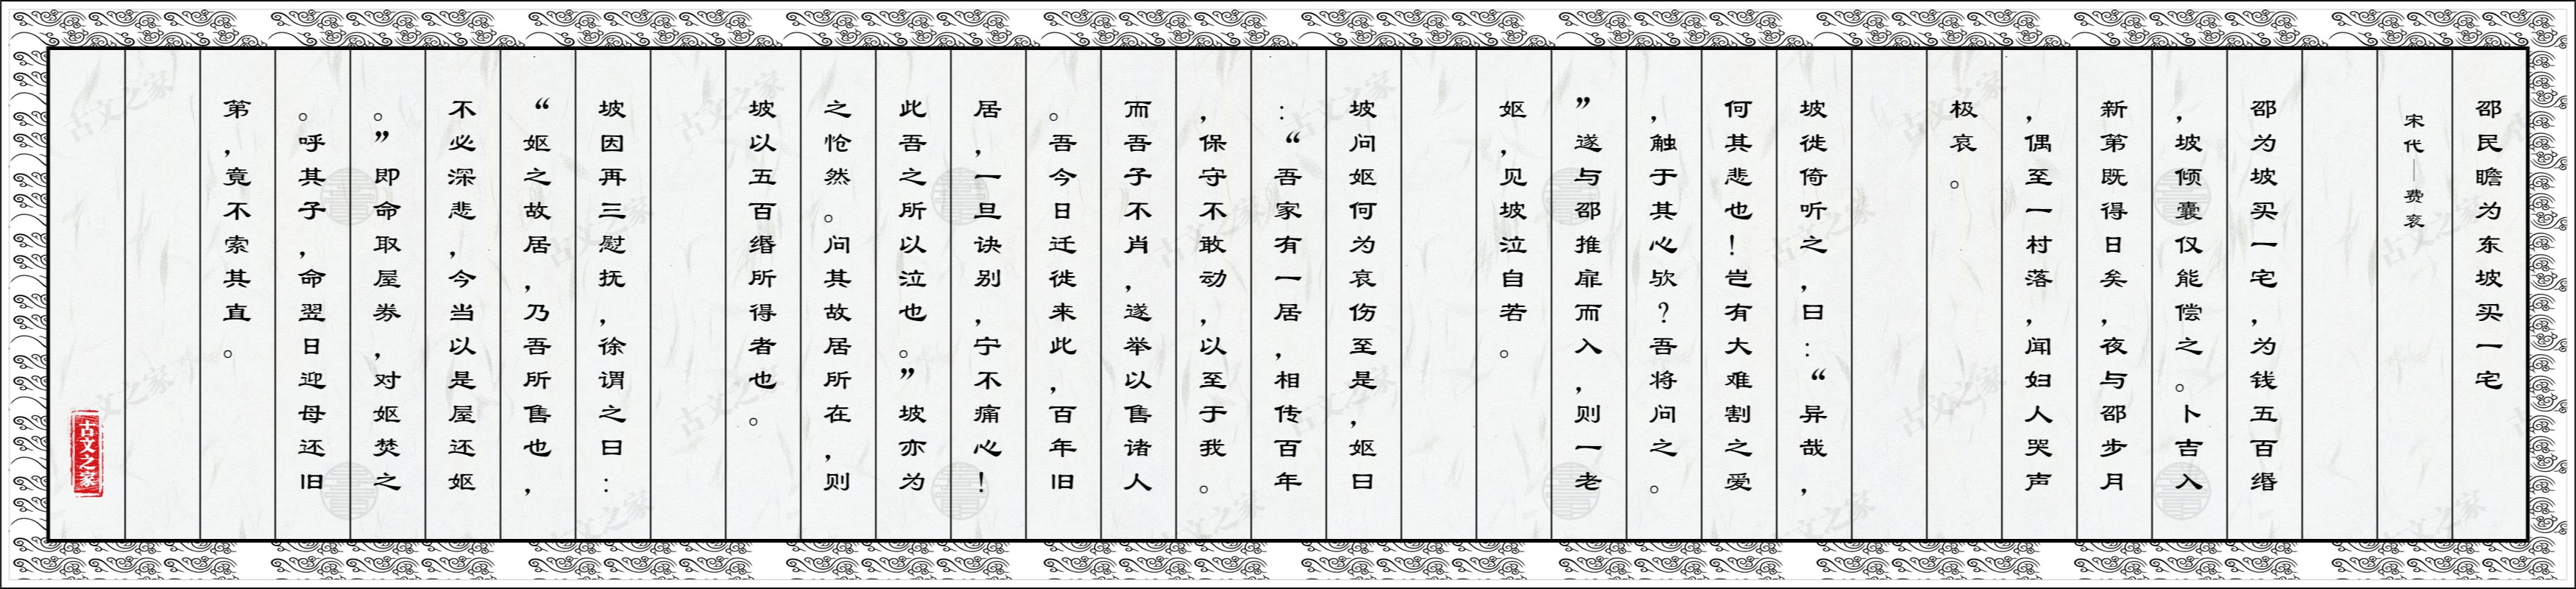 邵民瞻为东坡买一宅
宋代—费衮
邵为坡买一宅，为钱五百缗
，坡倾囊仅能偿之。卜吉入
新第既得日矣，夜与邵步月
，偶至一村落，闻妇人哭声
极哀。
坡徙倚听之，曰：“异哉，
何其悲也！岂有大难割之爱
，触于其心欤？吾将问之。
”遂与邵推扉而入，则一老
妪，见坡泣自若。
坡问妪何为哀伤至是，妪曰
：“吾家有一居，相传百年
，保守不敢动，以至于我。
而吾子不肖，遂举以售诸人
。吾今日迁徙来此，百年旧
居，一旦诀别，宁不痛心！
此吾之所以泣也。”坡亦为
之怆然。问其故居所在，则
坡以五百缗所得者也。
坡因再三慰抚，徐谓之曰：
“妪之故居，乃吾所售也，
不必深悲，今当以是屋还妪
。”即命取屋券，对妪焚之
。呼其子，命翌日迎母还旧
第，竟不索其直。
古文之家